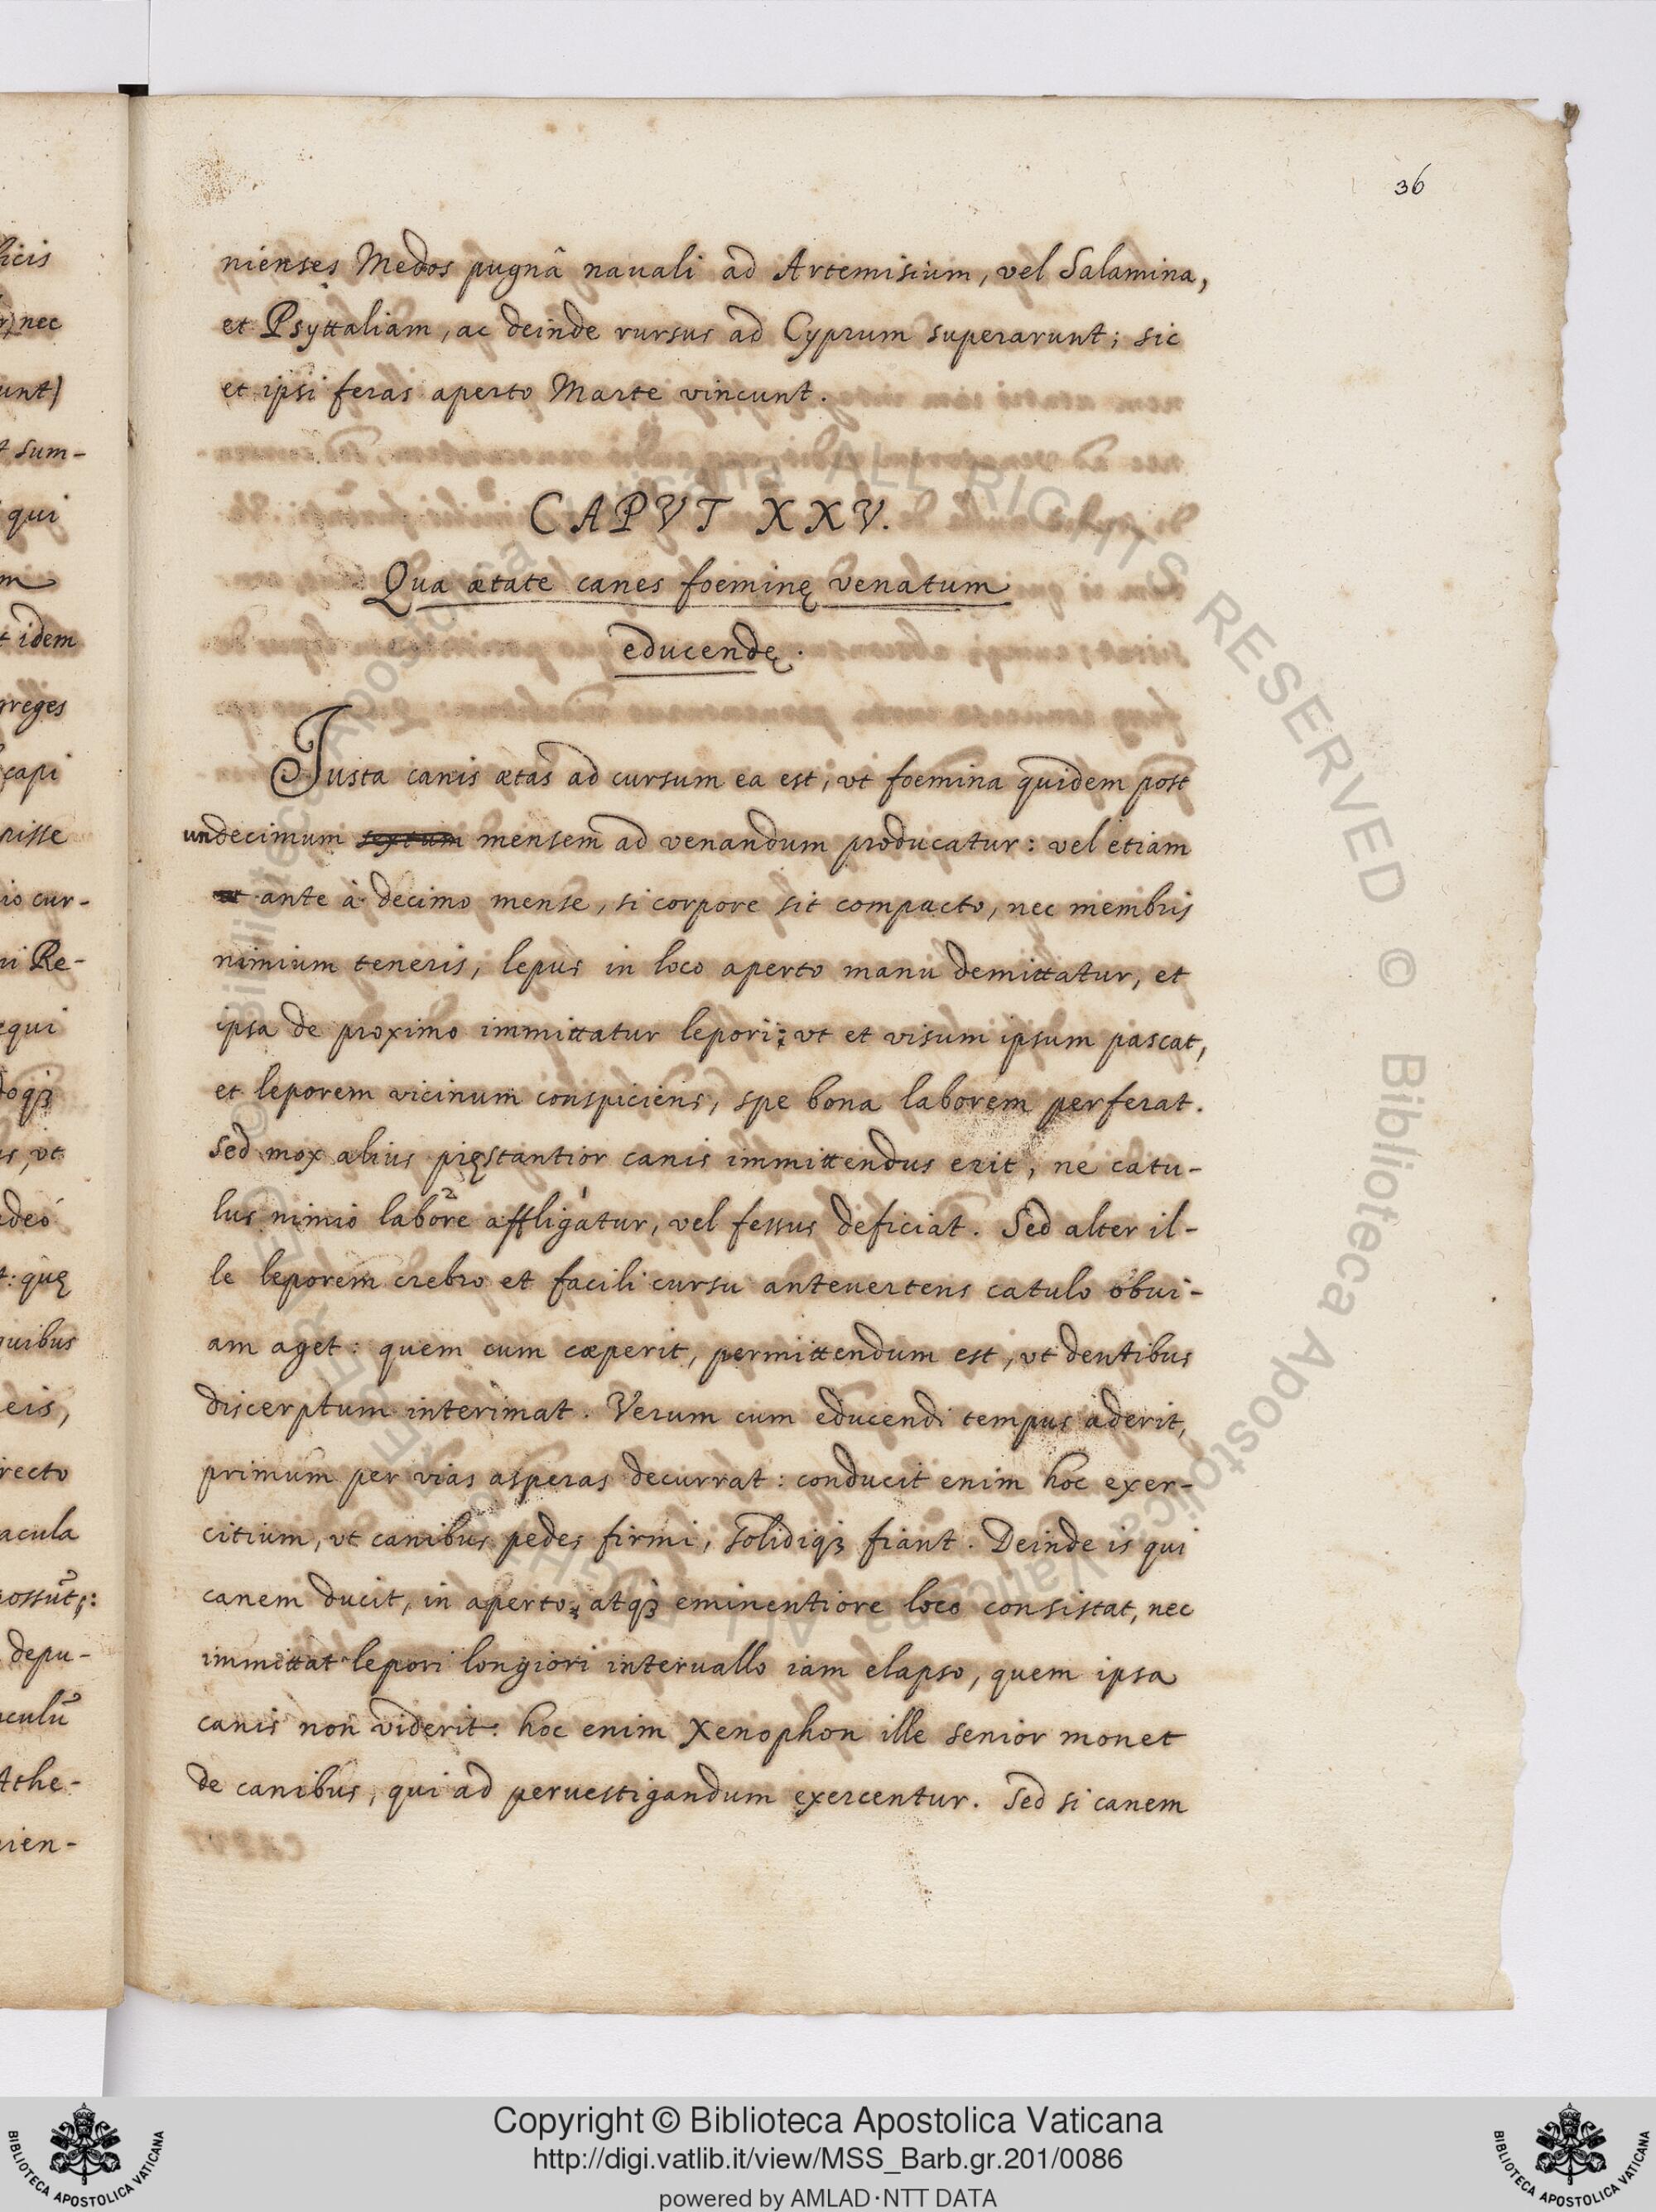 36
nienses Medos pugnâ nauali ad Artemisium, vel Salamina,
et Psyttaliam, ac deinde rursus ad Cyprum superarunt; sic
et ipsi feras aperto Marte vincunt.
CAPVT XXV.
Qua ætate canes foeminę venatum
educendę.
Iusta canis ætas ad cursum ea est, vt foemina quidem post
undecimum sextum mensem ad venandum producatur: vel etiam
ante à decimo mense, si corpore sit compacto, nec membris
nimium teneris, lepus in loco aperto manu demittatur, et
ipsa de proximo immittatur lepori; vt et visum ipsum pascat,
et leporem vicinum conspiciens, spe bona laborem perferat.
Sed mox alius pręstantior canis immittendus erit, ne catu-
lus nimio labore affligatur, vel fessus deficiat. Sed alter il-
le leporem crebro et facili cursu anteuertens catulo obui-
am aget: quem cum cæperit, permittendum est, vt dentibus
discerptum interimat. Verum cum educendi tempus aderit,
primum per vias asperas decurrat: conducit enim hoc exer-
citium, vt canibus pedes firmi, solidiqꝫ fiant. Deinde is qui
canem ducit, in aperto, atqꝫ eminentiore loco consistat, nec
immittat lepori longiori interuallo iam elapso, quem ipsa
canis non viderit: hoc enim Xenophon ille senior monet
de canibus, qui ad peruestigandum exercentur. Sed si canem
licis
nec
unt)
sum-
qui
m
idem
greges
capi
nisse
io cur-
ni Re-
equi
doqꝫ
is, vt
adeó
t: quę
quibus
eis,
recto
acula
possūt;:
depu-
aculū
Athe-
nien-
© Biblioteca Apostolica Vaticana ALL RIGHTS RESERVED © Biblioteca Apostolica Vaticana ALL RIGHTS RESERVED
Copyright © Biblioteca Apostolica Vaticana
http://digi.vatlib.it/view/MSS_Barb.gr.201/0086
powered by AMLAD·NTT DATA
BIBLIOTECA APOSTOLICA VATICANA
BIBLIOTECA APOSTOLICA VATICANA